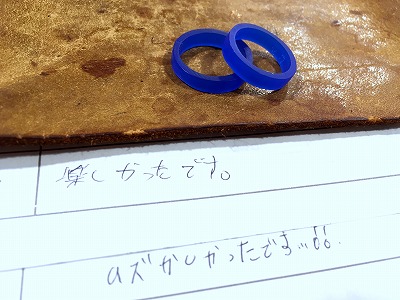 楽しかったです。
ムズかしかったです…!!.